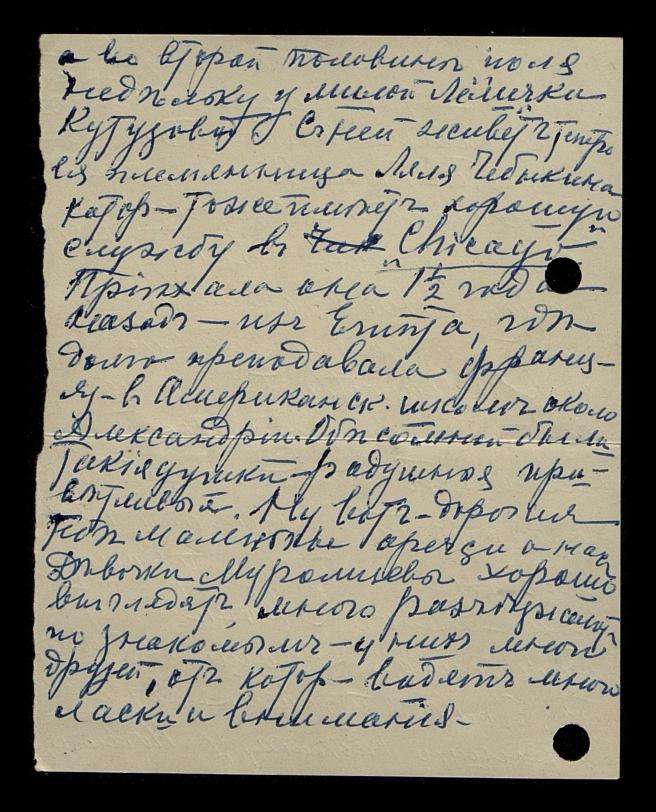 а во второй половинѣ іюля
недѣльку у милой Лёлички
Кутузовой. Съ ней живетъ теперь
ея племянница Ляля Чебыкина
котор– тоже имѣетъ хорошую
службу въ "Chicago"
Пріѣхала она 1½ года
назадъ – изъ Египта, гдѣ
долго преподавала франц–
яз– в Американск. школѣ около
Александріи. Обѣ со мной были
такія душки – радушныя при–
вѣтливыя. Ну вотъ – дорогія
мои маленькіе
Дѣвочки Муромцевы хорошо
выглядятъ много разъѣзжаютъ
по знакомымъ – у нихъ много
друзей, отъ котор– видятъ много
ласки и вниманія –